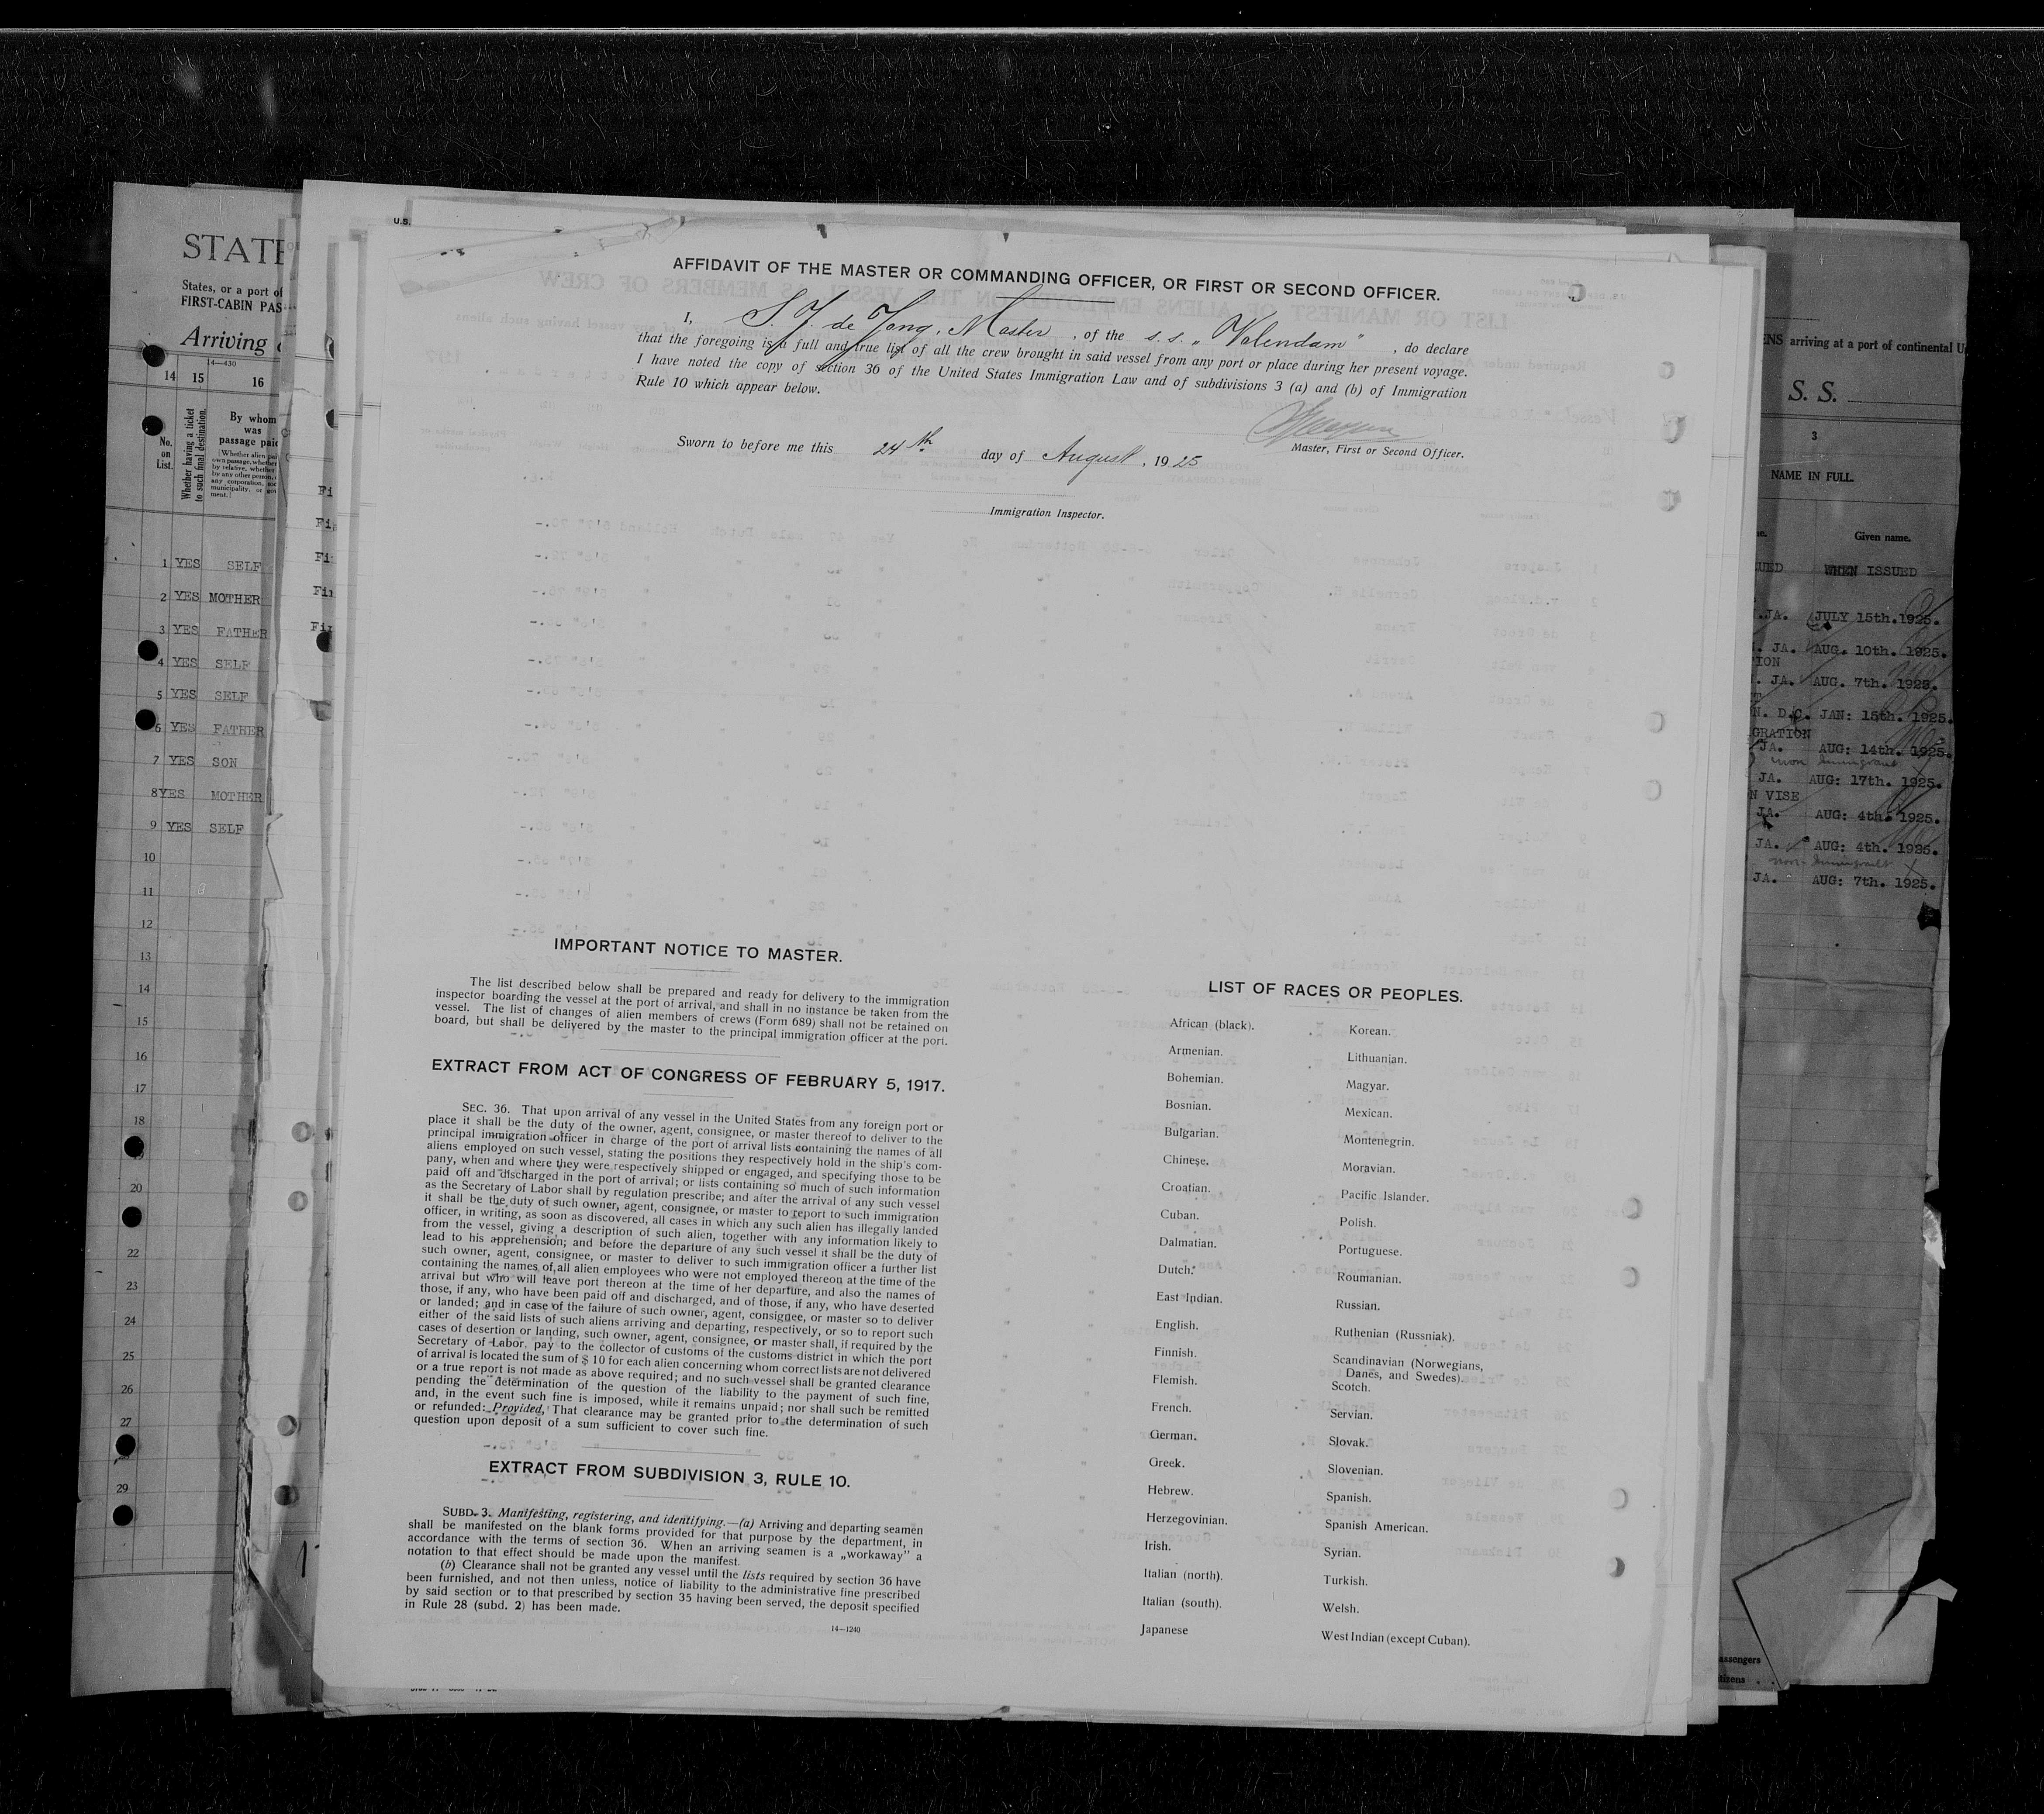 U.S.
AFFIDAVIT OF THE MASTER OR COMMANDING OFFICER, OR FIRST OR SECOND OFFICER.
I, S. J. de Jong, Master, of the s.s. „Volendam", do declare
that the foregoing is a full and true list of all the crew brought in said vessel from any port or place during her present voyage.
I have noted the copy of section 36 of the United States Immigration Law and of subdivisions 3 (a) and (b) of Immigration
Rule 10 which appear below.
Sworn to before me this 24th day of August, 1925
Master, First or Second Officer.
Immigration Inspector.
IMPORTANT NOTICE TO MASTER.
The list described below shall be prepared and ready for delivery to the immigration
inspector boarding the vessel at the port of arrival, and shall in no instance be taken from the
vessel. The list of changes of alien members of crews (Form 689) shall not be retained on
board, but shall be delivered by the master to the principal immigration officer at the port.
EXTRACT FROM ACT OF CONGRESS OF FEBRUARY 5, 1917.
SEC. 36. That upon arrival of any vessel in the United States from any foreign port or
place it shall be the duty of the owner, agent, consignee, or master thereof to deliver to the
principal immigration officer in charge of the port of arrival lists containing the names of all
aliens employed on such vessel, stating the positions they respectively hold in the ship's com-
pany, when and where they were respectively shipped or engaged, and specifying those to be
paid off and discharged in the port of arrival; or lists containing so much of such information
as the Secretary of Labor shall by regulation prescribe; and after the arrival of any such vessel
it shall be the duty of such owner, agent, consignee, or master to report to such immigration
officer, in writing, as soon as discovered, all cases in which any such alien has illegally landed
from the vessel, giving a description of such alien, together with any information likely to
lead to his apprehension; and before the departure of any such vessel it shall be the duty of
such owner, agent, consignee, or master to deliver to such immigration officer a further list
containing the names of all alien employees who were not employed thereon at the time of the
arrival but who will leave port thereon at the time of her departure, and also the names of
those, if any, who have been paid off and discharged, and of those, if any, who have deserted
or landed; and in case of the failure of such owner, agent, consignee, or master so to deliver
either of the said lists of such aliens arriving and departing, respectively, or so to report such
cases of desertion or landing, such owner, agent, consignee, or master shall, if required by the
Secretary of Labor, pay to the collector of customs of the customs district in which the port
of arrival is located the sum of $ 10 for each alien concerning whom correct lists are not delivered
or a true report is not made as above required; and no such vessel shall be granted clearance
pending the determination of the question of the liability to the payment of such fine,
and, in the event such fine is imposed, while it remains unpaid; nor shall such be remitted
or refunded: Provided, That clearance may be granted prior to the determination of such
question upon deposit of a sum sufficient to cover such fine.
EXTRACT FROM SUBDIVISION 3, RULE 10.
SUBD. 3. Manifesting, registering, and identifying.—(a) Arriving and departing seamen
shall be manifested on the blank forms provided for that purpose by the department, in
accordance with the terms of section 36. When an arriving seamen is a „workaway" a
notation to that effect should be made upon the manifest.
(b) Clearance shall not be granted any vessel until the lists required by section 36 have
been furnished, and not then unless, notice of liability to the administrative fine prescribed
by said section or to that prescribed by section 35 having been served, the deposit specified
in Rule 28 (subd. 2) has been made.
14—1240
LIST OF RACES OR PEOPLES.
African (black).
Armenian.
Bohemian.
Bosnian.
Bulgarian.
Chinese.
Croatian.
Cuban.
Dalmatian.
Dutch.
East Indian.
English.
Finnish.
Flemish.
French.
German.
Greek.
Hebrew.
Herzegovinian.
Irish.
Italian (north).
Italian (south).
Japanese
Korean.
Lithuanian.
Magyar.
Mexican.
Montenegrin.
Moravian.
Pacific Islander.
Polish.
Portuguese.
Roumanian.
Russian.
Ruthenian (Russniak).
Scandinavian (Norwegians,
Danes, and Swedes).
Scotch.
Servian.
Slovak.
Slovenian.
Spanish.
Spanish American.
Syrian.
Turkish.
Welsh.
West Indian (except Cuban).
STATE
States, or a port of
FIRST-CABIN PAS
Arriving
14—430
14 15 16
No. on List.
Whether having a ticket to such final destination.
By whom
was
passage paid
1 YES SELF
2 YES MOTHER
3 YES FATHER
4 YES SELF
5 YES SELF
6 YES FATHER
7 YES SON
8 YES MOTHER
9 YES SELF
10
11
12
13
14
15
16
17
18
19
20
22
23
24
25
26
27
29
ENS arriving at a port of continental U
S. S.
3
NAME IN FULL.
Given name.
UED WHEN ISSUED
.JA. JULY 15th.1925.
. JA. AUG. 10th. 1925.
TION
. JA. AUG. 7th. 1925.
N. D.C. JAN: 15th. 1925.
GRATION
JA. AUG: 14th. 1925.
non immigrant
JA. AUG: 17th. 1925.
N VISE
JA. AUG: 4th. 1925.
JA. AUG: 4th. 1925.
non-immigrant
JA. AUG: 7th. 1925.
assengers
tizens